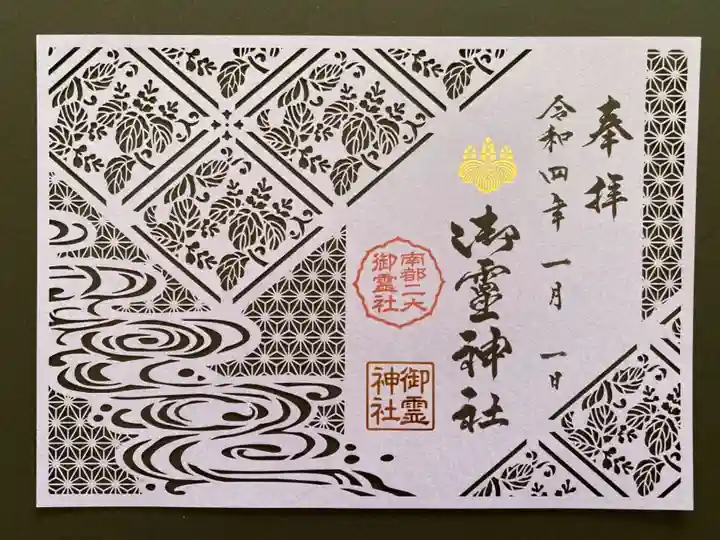 奉拝
令和四年一月一日
御靈神社
南都二大
御霊社
御霊
神社